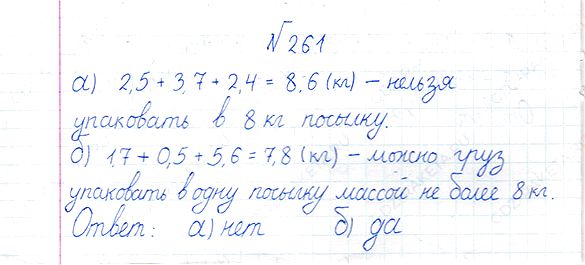 №261
а) 2,5 + 3,7 + 2,4 = 8,6 (кг) – нельзя
упаковать в 8 кг посылку.
б) 1,7 + 0,5 + 5,6 = 7,8 (кг) – можно груз
упаковать в одну посылку массой не более 8 кг.
Ответ: а) нет б) да